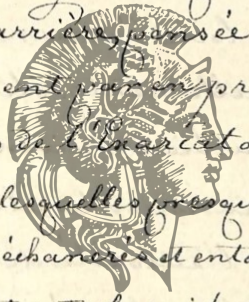 arrière, pensée
ent par en pr
de l'Exariat o
lesquelles presqu
échancrés et ent